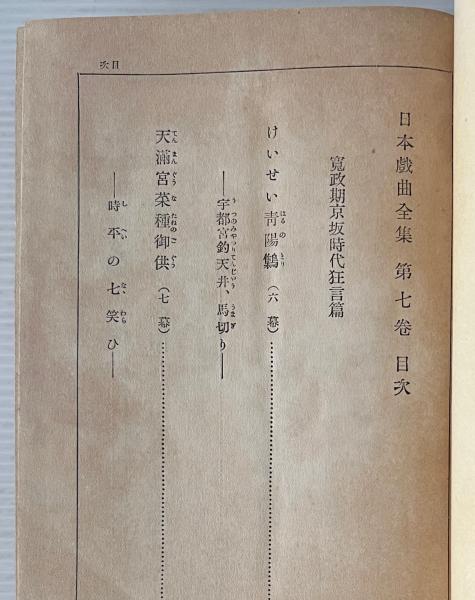 日本戲曲全集 第七卷 目次
寬政期京坂時代狂言篇
けいせい青陽鶤（六幕）
――宇都宮釣天井、馬切り――
天滿宮菜種御供（七幕）
――時平の七笑ひ――
目次